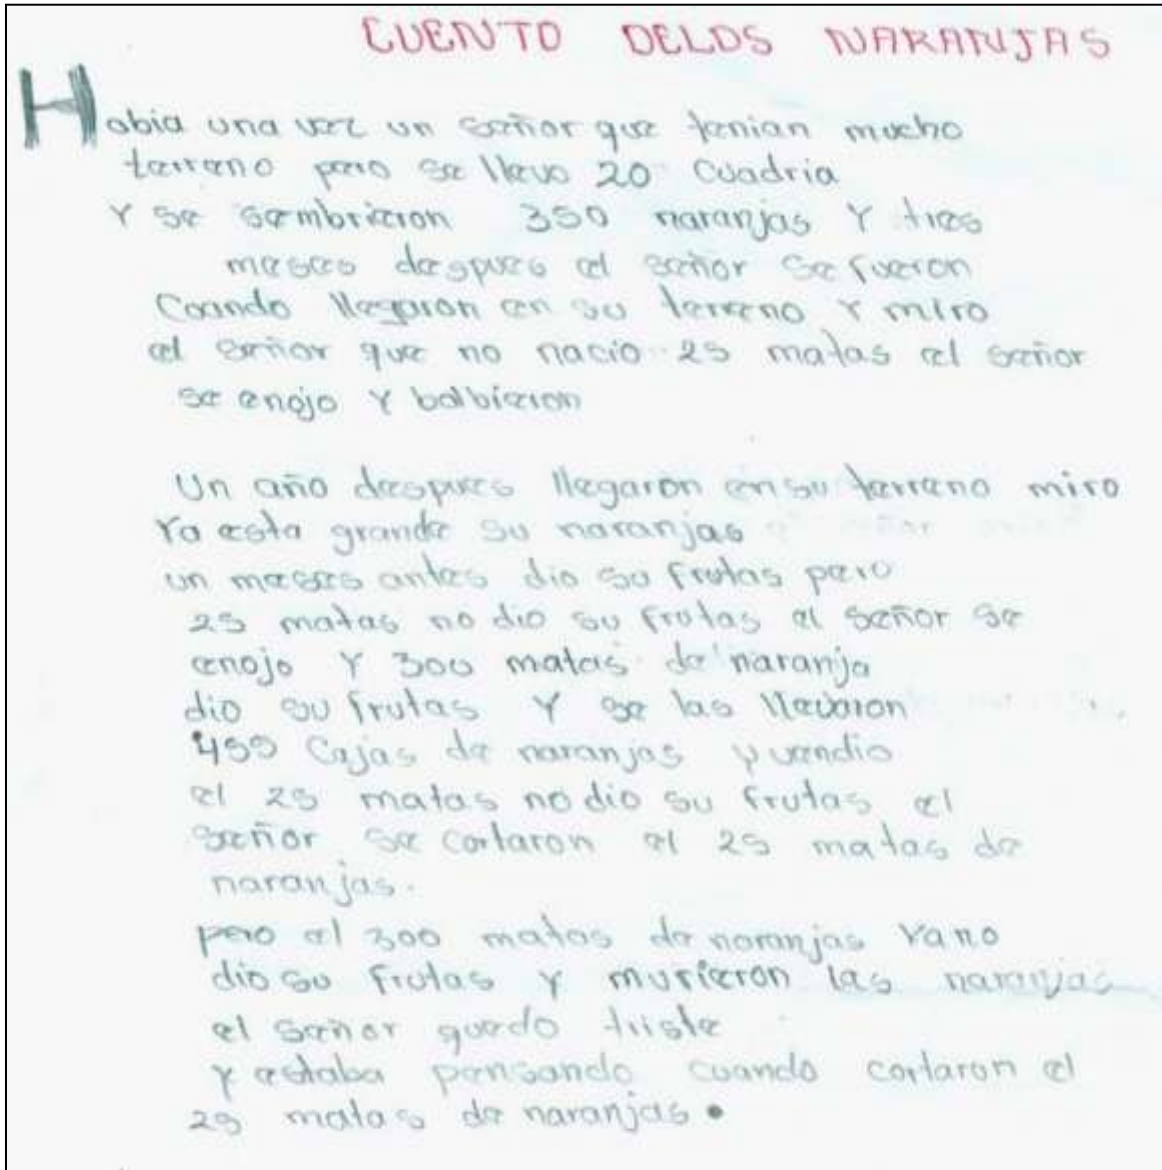 CUENTO DELOS NARANJAS
Habia una vez un señor que tenian mucho
terreno pero se llevo 20 cuadria
Y se sembrieron 350 naranjas Y tres
meses despues el señor se fueron
Coando llegaron en su terreno Y miro
el señor que no nacio 25 matas el señor
se enojo Y balbieron
Un año despues llegaron en su terreno miro
Ya esta grande su naranjas
un meses antes dio su frutas pero
25 matas no dio su frutas el señor se
enojo Y 300 matas de naranja
dio su frutas Y se las llevaron
455 Cajas de naranjas y vendio
el 25 matas no dio su frutas el
señor se cortaron el 25 matas de
naranjas.
pero el 300 matas de naranjas Ya no
dio su frutas Y murieron las naranjas
el señor quedo triste
y estaba pensando cuando cortaron el
25 matas de naranjas.